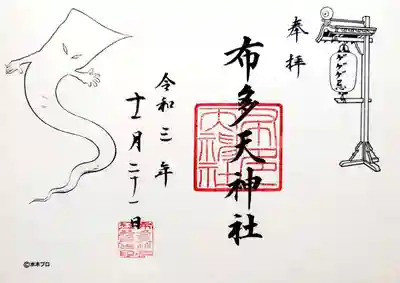 奉拝
ゲゲゲ忌
布多天神社
令和三年
十一月二十一日
©水木プロ